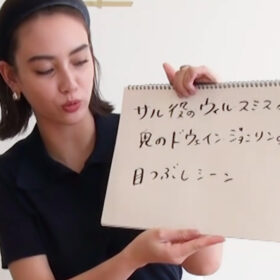 サル役のウィルスミス
鬼のドウェインジョンソンの
目つぶしシーン